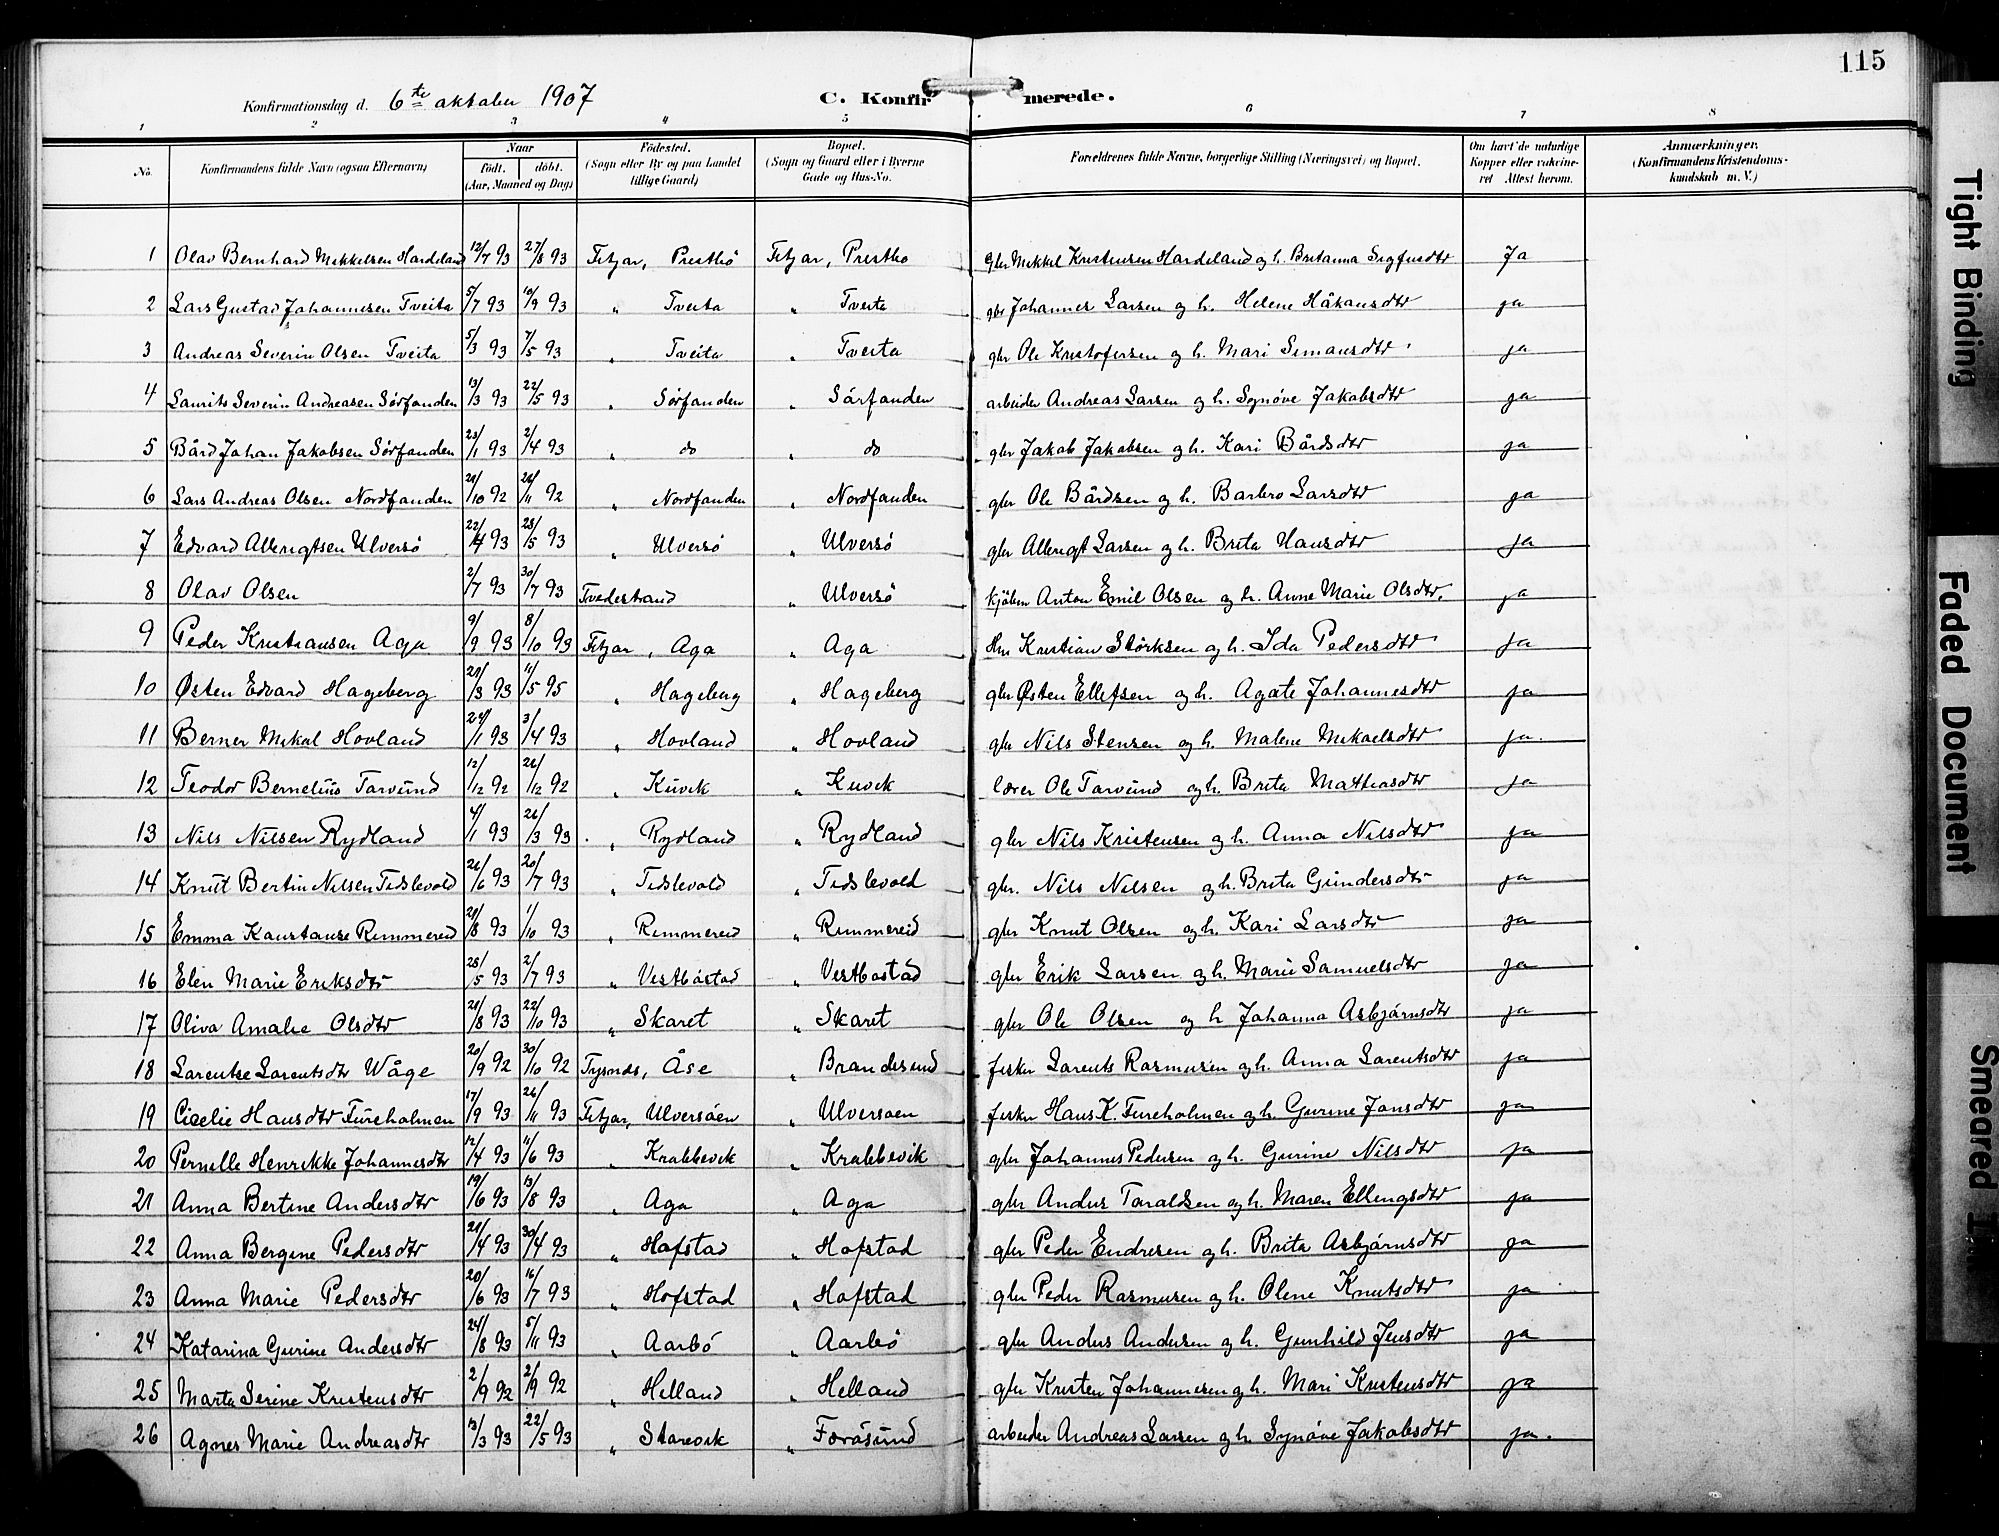 115
Konfirmationsdag d. 6te oktober 1907 C. Konfirmerede.
1 2 3 4 5 6 7 8
No. Konfirmandens fulde Navn (ogsaa Efternavn) Naar født. døbt. (Aar, Maaned og Dag) Fødested. (Sogn eller By og paa Landet tillige Gaard) Bopæl. (Sogn og Gaard eller i Byerne Gade og Hus-No. Forældrenes fulde Navne, borgerlige Stilling (Næringsvei) og Bopæl. Om havt de naturlige Kopper eller vakcineret Attest herom. Anmærkninger. (Konfirmandens Kristendomskundskab m. V.)
1 Olav Bernhard Mikkelsen Hardeland 12/7 93 27/8 93 Fitjar, Prestbö Fitjar, Prestbö gbr Mikkel Kristensen Hardeland og h. Britanna Sigfusdtr Ja
2 Lars Gustav Johannesen Tveita 5/7 93 10/9 93 " Tveita " Tveita gbr Johannes Larsen og h. Helene Håkansdtr ja
3 Andreas Severin Olsen Tveita 5/3 93 7/5 93 " Tveita " Tveita gbr Ole Kristofersen og h. Mari Simonsdtr ja
4 Laurits Severin Andreasen Sørfonden 13/3 93 22/5 93 " Sørfonden " Sørfonden arbeider Andreas Larsen og h. Synøve Jakobsdtr ja
5 Bård Johan Jakobsen Sørfonden 23/1 93 2/4 93 " do " do gbr Jakob Jakobsen og h. Kari Bårdsdtr ja
6 Lars Andreas Olsen Nordfonden /10 92 /11 92 " Nordfonden " Nordfonden gbr Ole Bårdsen og h. Barbro Larsdtr ja
7 Edvard Albrigtsen Ulversö 22/4 93 28/5 93 " Ulversö " Ulversö gbr Albrigt Larsen og h. Brita Hansdtr ja
8 Olav Olsen 2/7 93 30/7 93 Tvedestrand " Ulversö kjöbm Anton Emil Olsen og h. Anne Marie Olsdtr. ja
9 Peder Kristiansen Aga 9/9 93 8/10 93 Fitjar, Aga " Aga Kristian Størksen og h. Ida Pedersdtr ja
10 Østen Edvard Hageberg /3 93 11/5 95 " Hageberg " Hageberg gbr Østen Ellefsen og h. Agate Johannesdtr ja
11 Berner Mikal Hovland 29/1 93 3/4 93 " Hovland " Hovland gbr Nils Stensen og h. Malene Mikaelsdtr ja.
12 Teodor Bernelius Tarvund 12/12 92 26/12 92 " Kuvik " Kuvik lærer Ole Tarvund og h. Brita Mattiasdtr ja
13 Nils Nilsen Rydland 4/1 93 26/3 93 " Rydland " Rydland gbr Nils Kristensen og h. Anna Nilsdtr ja
14 Knut Bertin Nilsen Tislevold /6 93 20/7 93 " Tislevold " Tislevold gbr. Nils Nilsen og h. Brita Gundersdtr ja
15 Emma Konstanse Rimmereid /8 93 1/10 93 " Rimmereid " Rimmereid gbr Knut Olsen og h. Kari Larsdtr ja
16 Elen Marie Eriksdtr 28/5 93 2/7 93 " Vestböstad " Vestbostad gbr Erik Larsen og h. Marie Samuelsdtr ja
17 Oliva Amalie Olsdtr /8 93 22/10 93 " Skaret " Skaret gbr Ole Olsen og h Johanna Asbjørnsdtr ja
18 Larentse Larentsdtr Wåge 20/9 92 30/10 92 Tysnes, Åse " Brandesund fisker Larents Rasmusen og h. Anna Larentsdtr ja
19 Cicelie Hansdtr Fureholmen 17/9 93 26/11 93 Fitjar, Ulversöen " Ulversöen fisker Hans K. Fureholmen og h. Gurine Jonsdtr ja
20 Pernelle Henrikke Johannesdtr 12/4 93 11/6 93 " Krabbevik " Krabbevik gbr Johannes Pedersen og h. Gurine Nilsdtr ja
21 Anna Bertine Andersdtr 19/6 93 13/8 93 " Aga " Aga gbr Anders Taraldsen og h. Maren Ellingsdtr ja
22 Anna Bergine Pedersdtr /4 93 30/4 93 " Hofstad " Hofstad gbr Peder Endresen og h. Brita Asbjørnsdtr ja
23 Anna Marie Pedersdtr 20/6 93 16/7 93 " Hofstad " Hofstad gbr Peder Rasmusen og h. Olene Knutsdtr ja
24 Katarina Gurine Andersdtr 24/8 93 5/11 93 " Aarbö " Aarbö gbr Anders Andersen og h. Gunhild Jensdtr ja
25 Marta Serine Kristensdtr 2/9 92 2/9 92 " Helland " Helland gbr Kristen Johannesen og h. Mari Kristensdtr ja
26 Agnes Marie Andreasdtr 13/3 93 22/5 93 " Starevik " Foråsund arbeider Andreas Larsen og h. Synøve Jakobsdtr ja.
Tight Binding
Faded Document
Smeared